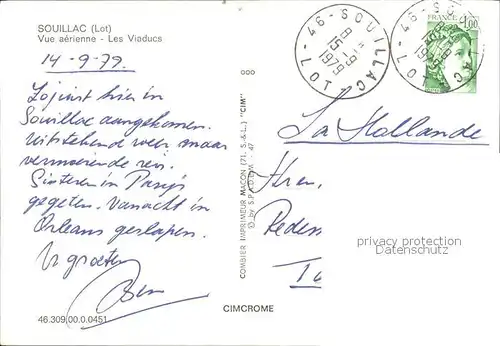 SOUILLAC (Lot)
Vue aérienne - Les Viaducs
14-9-79.
Zojuist hier in
Souillac aangekomen.
Uitstekend weer maar
vermoeiende reis.
Gisteren in Parijs
gegeten. Vanacht in
Orleans geslapen.
Vr groeten
46.309.00.0.0451
COMBIER IMPRIMEUR MACON (71. S.-&-L.) "CIM"
CIMCROME
46 - SOUILLAC
LOT
15-9
1979
46 - SOUILLAC
LOT
1979
FRANCE
1,00
La Hollande
Hren.
privacy protection
Datenschutz